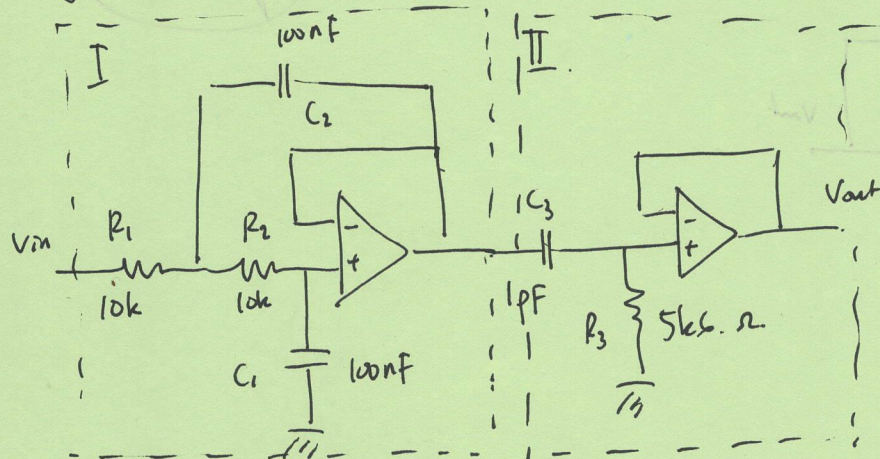 I
100nF
C2
II
Vin
R1
10k
R2
10k
-
+
C1
100nF
C3
1pF
-
+
R3
5k6.Ω
Vout